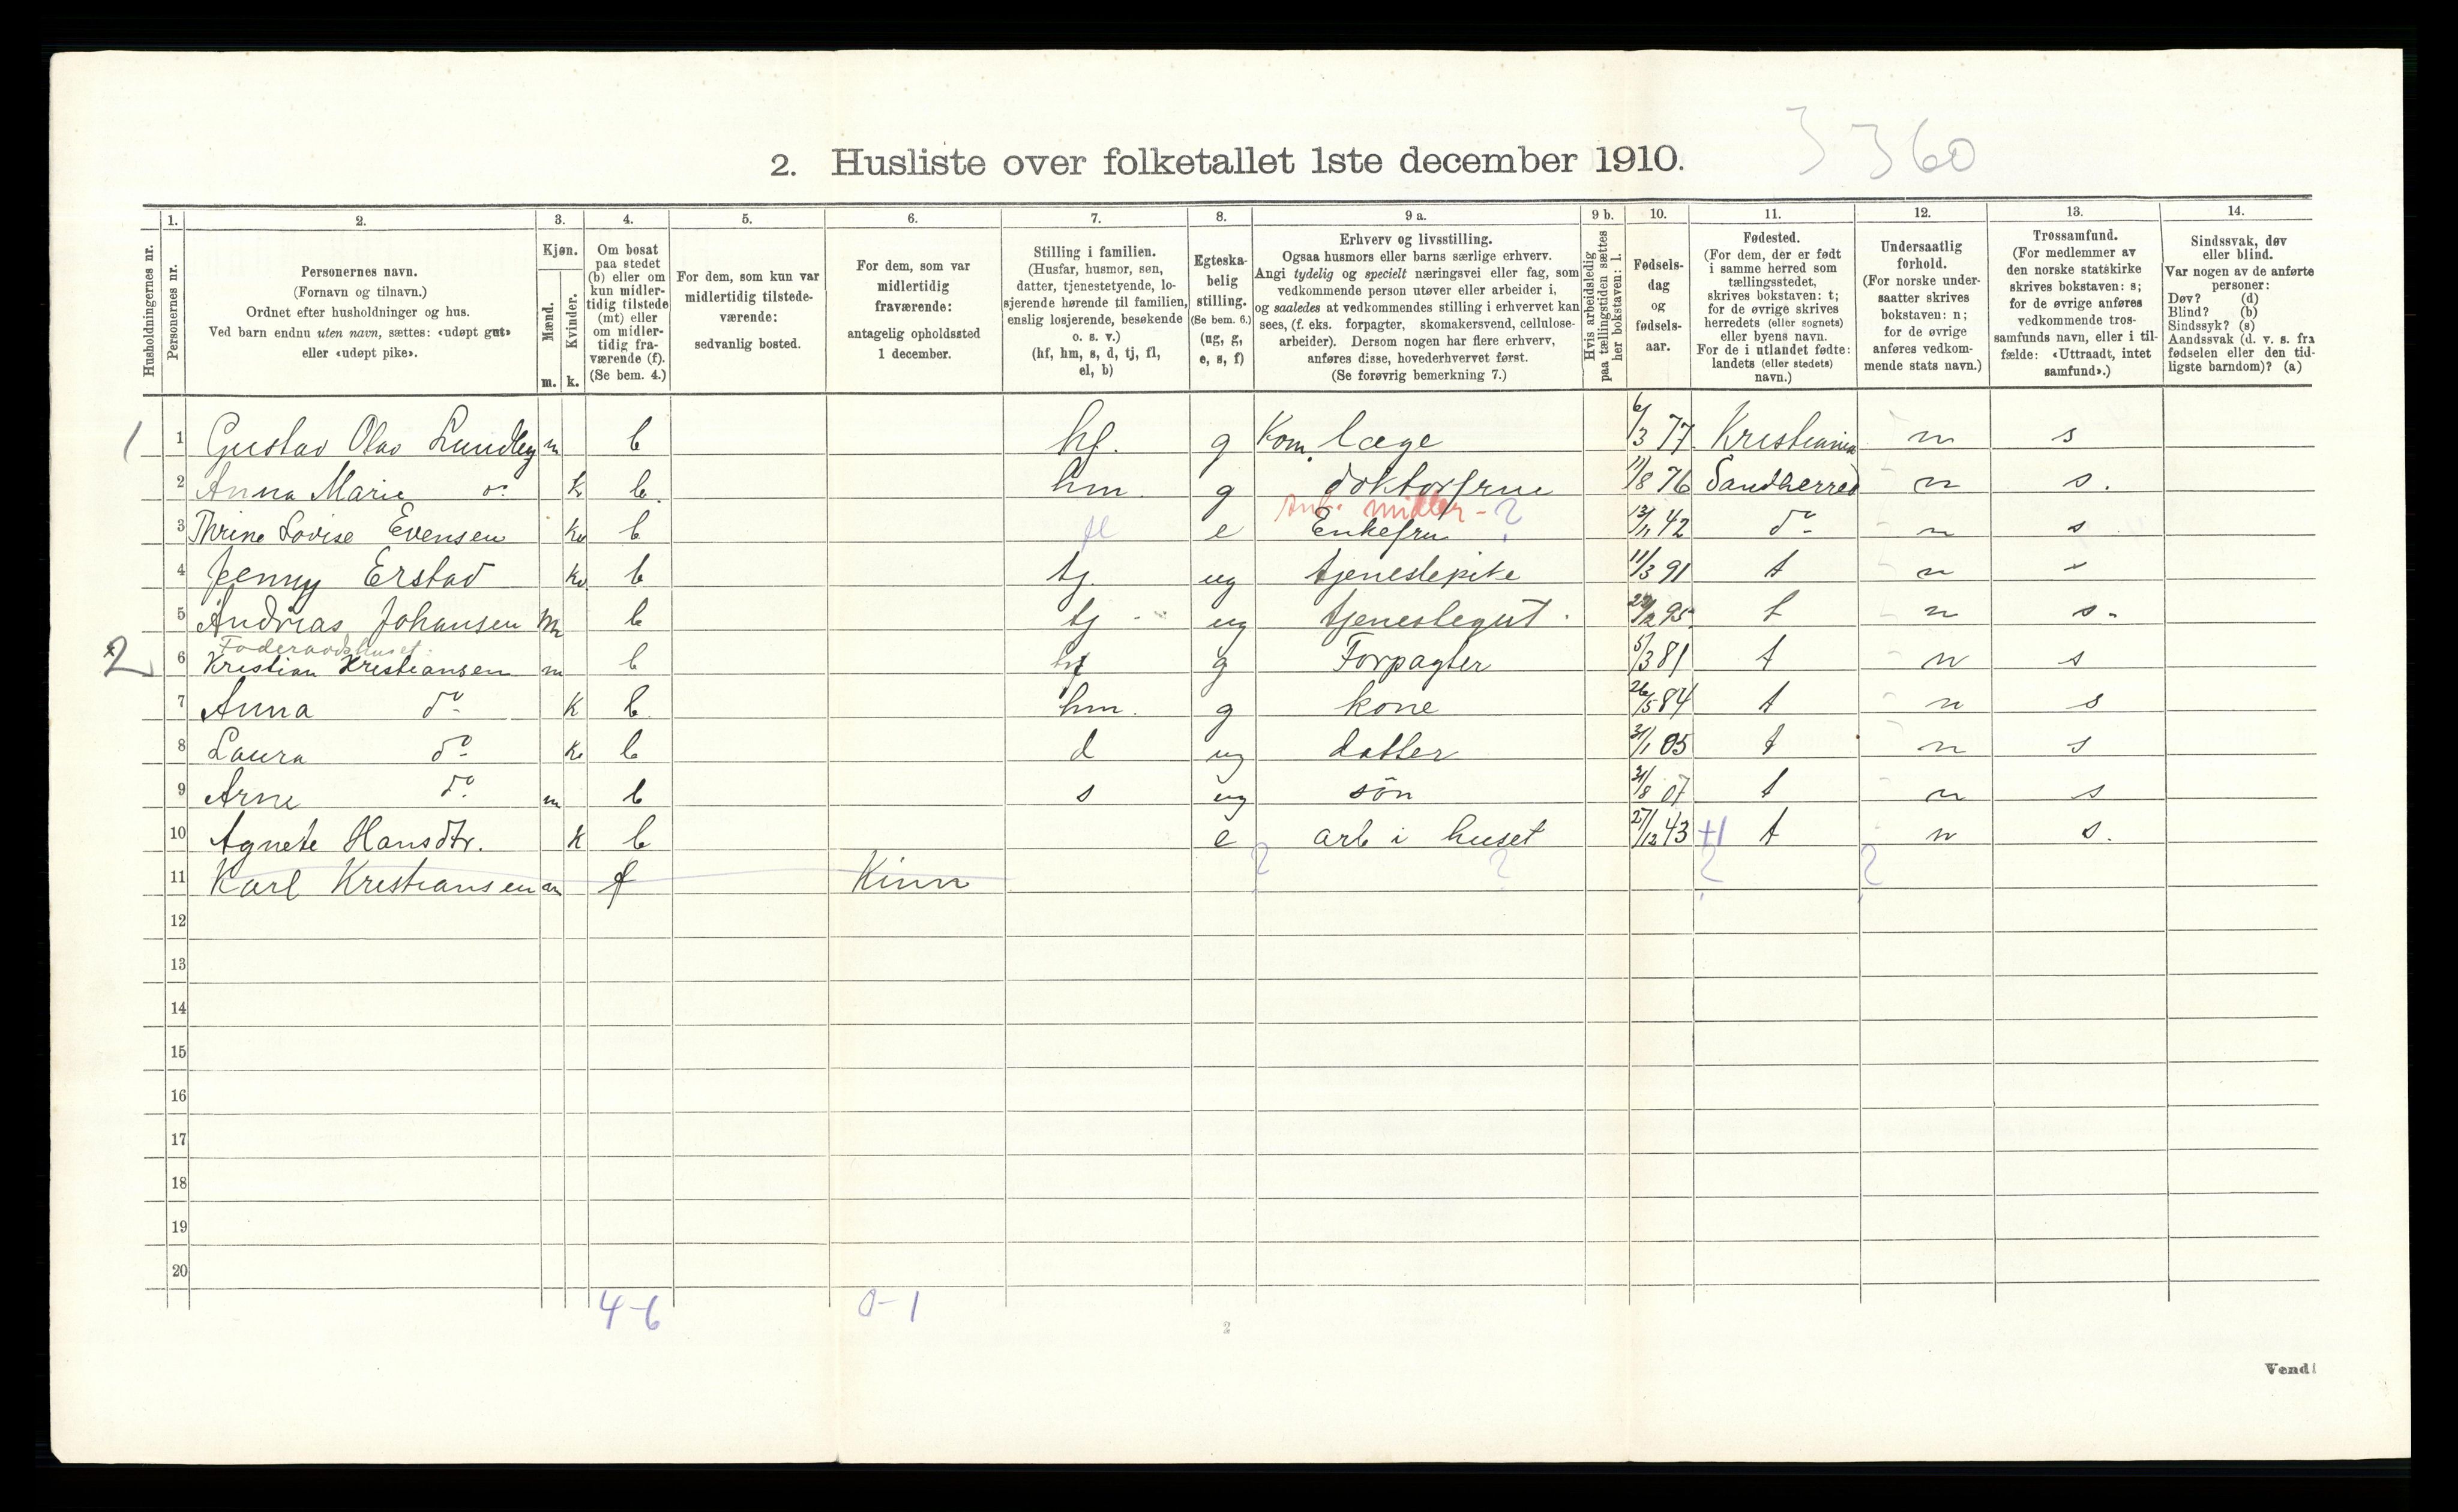 3 360
2. Husliste over folketallet 1ste december 1910.
Husholdningernes nr.
1. Personernes nr.
2. Personernes navn.
(Fornavn og tilnavn.)
Ordnet efter husholdninger og hus.
Ved barn endnu uten navn, sættes: «udøpt gut»
eller «udøpt pike».
3. Kjøn.
Mænd. m.
Kvinder. k.
4. Om bosat
paa stedet
(b) eller om
kun midler-
tidig tilstede
(mt) eller
om midler-
tidig fra-
værende (f).
(Se bem. 4.)
5. For dem, som kun var
midlertidig tilstede-
værende:
sedvanlig bosted.
6. For dem, som var
midlertidig
fraværende:
antagelig opholdssted
1 december.
7. Stilling i familien.
(Husfar, husmor, søn,
datter, tjenestetyende, lo-
sjerende hørende til familien,
enslig losjerende, besøkende
o. s. v.)
(hf, hm, s, d, tj, fl,
el, b)
8. Egteska-
belig
stilling.
(Se bem. 6.)
(ug, g,
e, s, f)
9 a. Erhverv og livsstilling.
Ogsaa husmors eller barns særlige erhverv.
Angi tydelig og specielt næringsvei eller fag, som
vedkommende person utøver eller arbeider i,
og saaledes at vedkommendes stilling i erhvervet kan
sees, (f. eks. forpagter, skomakersvend, cellulose-
arbeider). Dersom nogen har flere erhverv,
anføres disse, hovederhvervet først.
(Se forøvrig bemerkning 7.)
9 b. Hvis arbeidsledig
paa tællingstiden sættes
her bokstaven: l.
10. Fødsels-
dag
og
fødsels-
aar.
11. Fødested.
(For dem, der er født
i samme herred som
tællingsstedet,
skrives bokstaven: t;
for de øvrige skrives
herredets (eller sognets)
eller byens navn.
For de i utlandet fødte:
landets (eller stedets)
navn.)
12. Undersaatlig
forhold.
(For norske under-
saatter skrives
bokstaven: n;
for de øvrige
anføres vedkom-
mende stats navn.)
13. Trossamfund.
(For medlemmer av
den norske statskirke
skrives bokstaven: s;
for de øvrige anføres
vedkommende tros-
samfunds navn, eller i til-
fælde: «Uttraadt, intet
samfund».)
14. Sindssvak, døv
eller blind.
Var nogen av de anførte
personer:
Døv? (d)
Blind? (b)
Sindssyk? (s)
Aandssvak (d. v. s. fra
fødselen eller den tid-
ligste barndom)? (a)
1 1 Gustav Olav Lundby m b hf. g Kom. læge 6/3 77 Kristiania n s
2 Anna Marie do k b. hm. g doktorfrue 11/8 76 Sandherred n s.
midler - ?
3 Thrine Lovise Evensen kv b fl e Enkefru 13/11 42 do n s
4 Jenny Erstad kv b tj. ug tjenestepike 11/3 91 t n
5 Andrias Johansen m b tj ug tjenestegut 95 t n s.
Føderaadshuset.
2 6 Kristian Kristiansen m b hf g Forpagter 5/3 81 t n s
7 Anna do k b hm. g kone 26/5 84 t n s
8 Laura do kv b d ug datter 31/1 05 t n s
9 Arne do m b s ug sön 31/8 07 t n s
10 Agnete Hansdtr. k b e arb i huset 27/12 43 t n s.
11 Karl Kristiansen m f Kinn ? ? ? ?
12
13
14
15
16
17
18
19
20
4-6 0-1
2
Vend!